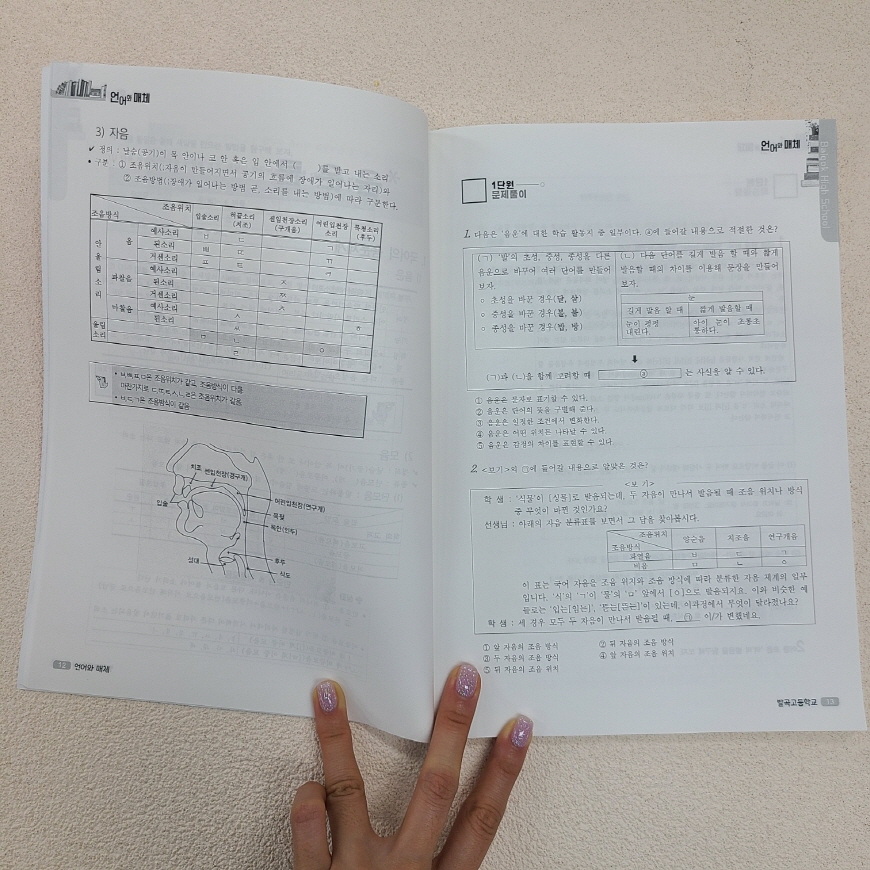 언어와 매체
3) 자음
✔ 정의 : 날숨(공기)이 목 안이나 코 안 혹은 입 안에서 ( )를 받고 내는 소리
• 구분 : ① 조음위치(:자음이 만들어지면서 공기의 흐름에 장애가 일어나는 자리)와
② 조음방법(:장애가 일어나는 방법 곧, 소리를 내는 방법)에 따라 구분한다.
조음위치
조음방식
입술소리
혀끝소리 (치조)
센입천장소리 (경구개)
여린입천장 소리
목청소리 (후두)
안울림소리
예사소리 ㅂ ㄷ ㄱ
된소리 ㅃ ㄸ ㄲ
거센소리 ㅍ ㅌ ㅋ
파찰음
예사소리 ㅈ
된소리 ㅉ
거센소리 ㅊ
마찰음
예사소리 ㅅ ㅎ
된소리 ㅆ
울림소리
ㅁ ㄴ ㅇ
ㄹ
• ㅂㅃㅍㅁ은 조음위치가 같고, 조음방식이 다름.
마찬가지로 ㄷㄸㅌㅅㄴㄹ은 조음위치가 같음.
• ㅂㄷㄱ은 조음방식이 같음
치조
센입천장(경구개)
여린입천장(연구개)
입술
목젖
목안(인두)
성대
후두
식도
12 언어와 매체
언어와 매체
High School
1단원
문제풀이
1. 다음은 '음운'에 대한 학습 활동지 중 일부이다. ⓐ에 들어갈 내용으로 적절한 것은?
(ㄱ) '발'의 초성, 중성, 종성을 다른
음운으로 바꾸어 여러 단어를 만들어
보자.
○ 초성을 바꾼 경우(달, 살)
○ 중성을 바꾼 경우(볼, 불)
○ 종성을 바꾼 경우(밥, 방)
(ㄴ) 다음 단어를 길게 발음 할 때와 짧게
발음할 때의 차이를 이용해 문장을 만들어
보자.
눈
길게 발음 할 때 짧게 발음할 때
눈이 펑펑 내린다.
아이 눈이 초롱초롱하다.
(ㄱ)과 (ㄴ)을 함께 고려할 때 ⓐ 는 사실을 알 수 있다.
① 음운은 문자로 표기할 수 있다.
② 음운은 단어의 뜻을 구별해 준다.
③ 음운은 일정한 조건에서 변화한다.
④ 음운은 어떤 위치든 나타날 수 있다.
⑤ 음운은 감정의 차이를 표현할 수 있다.
2 <보기>의 ㉠에 들어갈 내용으로 알맞은 것은?
<보 기>
학 생 : '식물'이 [싱물]로 발음되는데, 두 자음이 만나서 발음될 때 조음 위치나 방식
중 무엇이 바뀐 것인가요?
선생님 : 아래의 자음 분류표를 보면서 그 답을 찾아봅시다.
조음위치
조음방식
양순음 치조음 연구개음
파열음 ㅂ ㄷ ㄱ
비음 ㅁ ㄴ ㅇ
이 표는 국어 자음을 조음 위치와 조음 방식에 따라 분류한 자음 체계의 일부
입니다. '식'의 'ㄱ'이 '물'의 'ㅁ' 앞에서 [ㅇ]으로 발음되지요. 이와 비슷한 예
들로는 '입는[임는]', '뜯는[뜬는]'이 있는데, 이과정에서 무엇이 달라졌나요?
학 생 : 세 경우 모두 두 자음이 만나서 발음될 때, ㉠ 이/가 변했네요.
① 앞 자음의 조음 방식 ② 뒤 자음의 조음 방식
③ 두 자음의 조음 방식 ④ 앞 자음의 조음 위치
⑤ 뒤 자음의 조음 위치
발곡고등학교 13